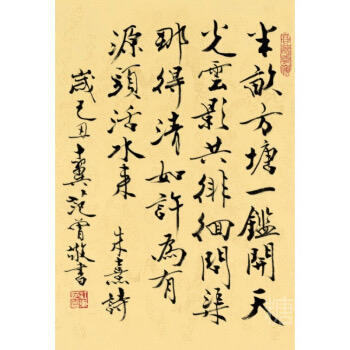 半畝方塘一鑑開天
光雲影共徘徊問渠
那得清如許為有
源頭活水来
朱熹詩
歲己丑十翼范曾敬書